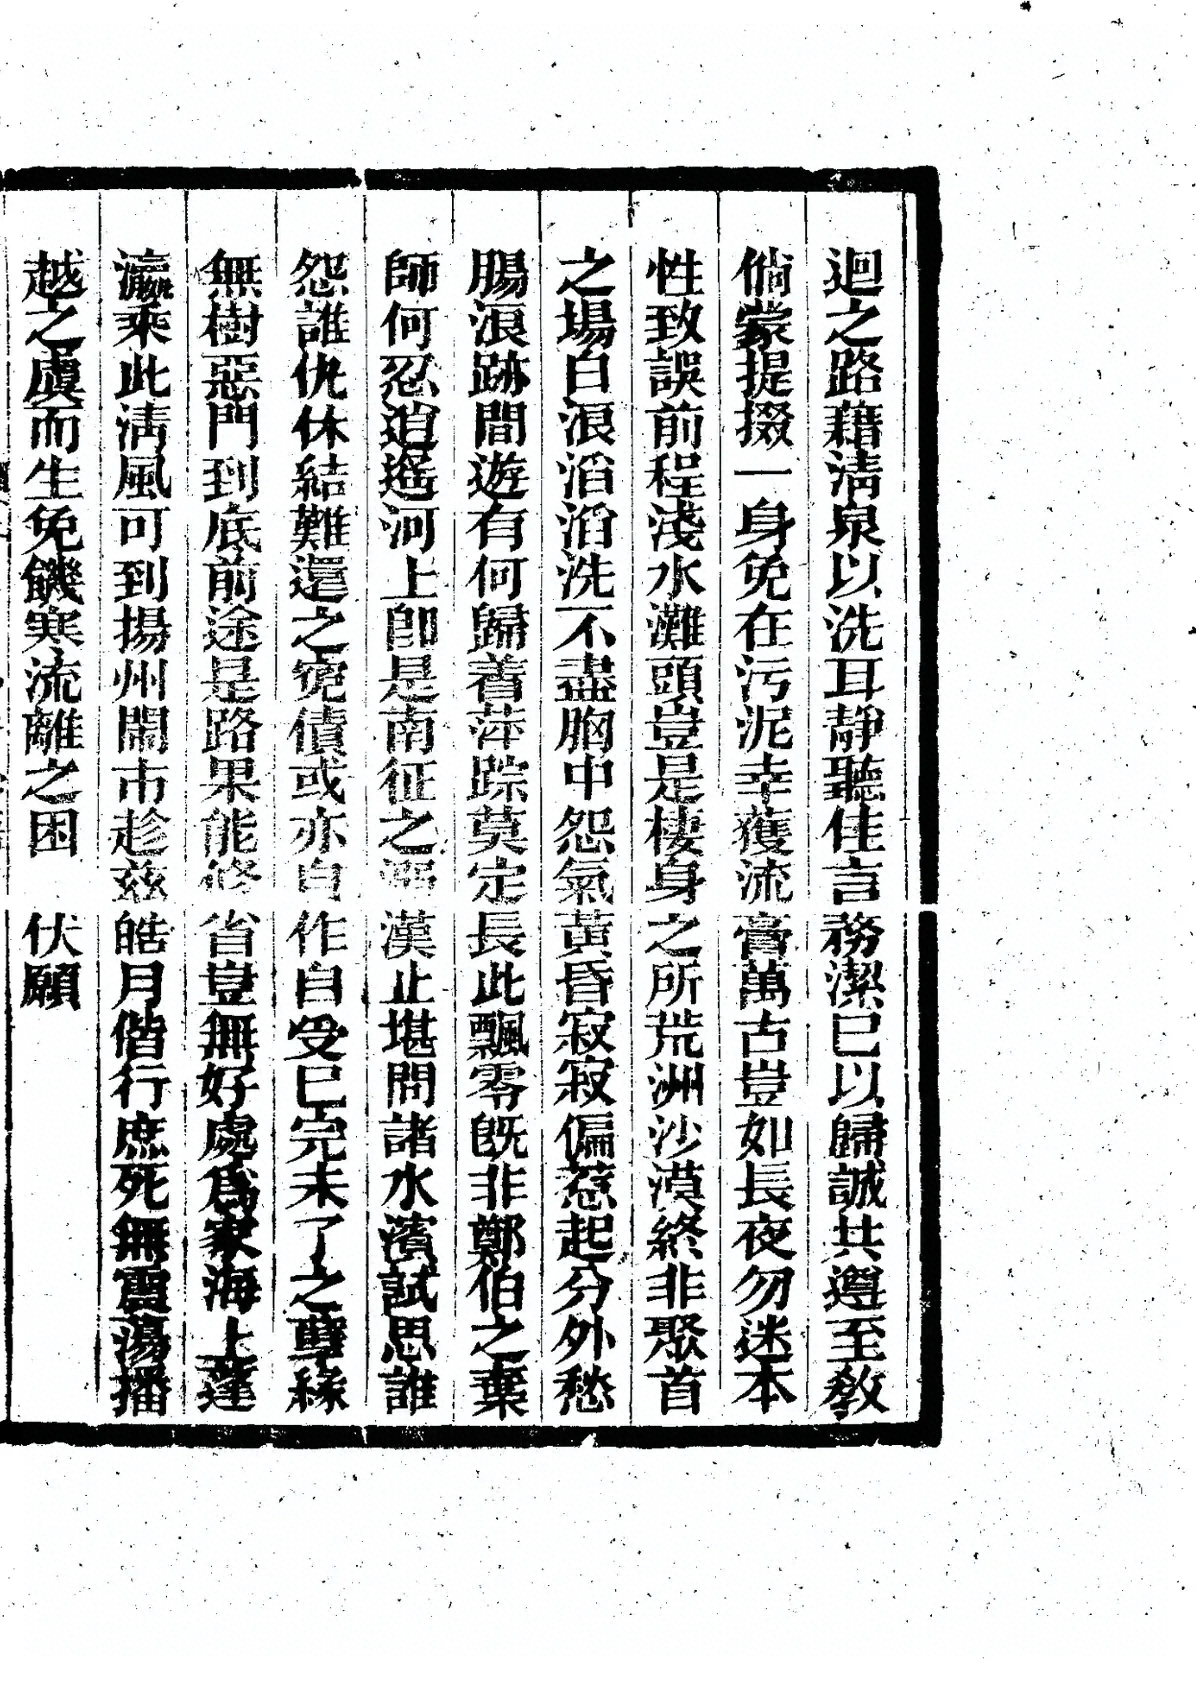 迴之路藉清泉以洗耳靜聽佳言務潔已以歸誠共遵至教
倘蒙提掇一身免在污泥幸獲流膏萬古豈如長夜勿迷本
性致誤前程淺水灘頭豈是棲身之所荒洲沙漠終非聚首
之場白浪滔滔洗不盡胸中怨氣黃昏寂寂偏惹起分外愁
腸浪跡間遊有何歸着萍踪莫定長此飄零旣非鄭伯之棄
師何忍逍遙河上卽是南征之溺漢止堪問諸水濱試思誰
怨誰仇休結難還之寃債或亦自作自受巳完未了之孽緣
無樹惡門到底前途是路果能修省豈無好處爲家海上蓬
瀛乘此淸風可到揚州鬧市趁茲皓月偕行庶死無震蕩播
越之虞而生免饑寒流離之困 伏願